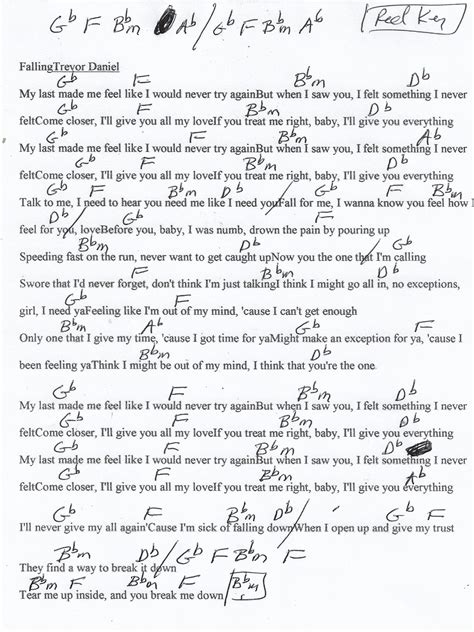 G♭ F B♭m A♭ / G♭ F B♭m A♭ Reel Key
FallingTrevor Daniel
G♭ F B♭m D♭
My last made me feel like I would never try againBut when I saw you, I felt something I never
G♭ F B♭m D♭
feltCome closer, I'll give you all my loveIf you treat me right, baby, I'll give you everything
G♭ F B♭m A♭
My last made me feel like I would never try againBut when I saw you, I felt something I never
G♭ F B♭m D♭
feltCome closer, I'll give you all my loveIf you treat me right, baby, I'll give you everything
G♭ F B♭m D♭ / G♭ F B♭m
Talk to me, I need to hear you need me like I need youFall for me, I wanna know you feel how I
D♭ / G♭ F
feel for you, loveBefore you, baby, I was numb, drown the pain by pouring up
B♭m D♭ / G♭
Speeding fast on the run, never want to get caught upNow you the one that I'm calling
F B♭m D♭
Swore that I'd never forget, don't think I'm just talkingI think I might go all in, no exceptions,
G♭ F
girl, I need yaFeeling like I'm out of my mind, 'cause I can't get enough
B♭m A♭ G♭ F
Only one that I give my time, 'cause I got time for yaMight make an exception for ya, 'cause I
B♭m D♭ /
been feeling yaThink I might be out of my mind, I think that you're the one
G♭ F B♭m D♭
My last made me feel like I would never try againBut when I saw you, I felt something I never
G♭ F B♭m D♭
feltCome closer, I'll give you all my loveIf you treat me right, baby, I'll give you everything
G♭ F B♭m D♭
My last made me feel like I would never try againBut when I saw you, I felt something I never
G♭ F B♭m A♭
feltCome closer, I'll give you all my loveIf you treat me right, baby, I'll give you everything
G♭ F B♭m D♭ / G♭ F
I'll never give my all again'Cause I'm sick of falling downWhen I open up and give my trust
B♭m D♭ / G♭ F B♭m F
They find a way to break it down
B♭m F B♭m F / B♭m
Tear me up inside, and you break me down